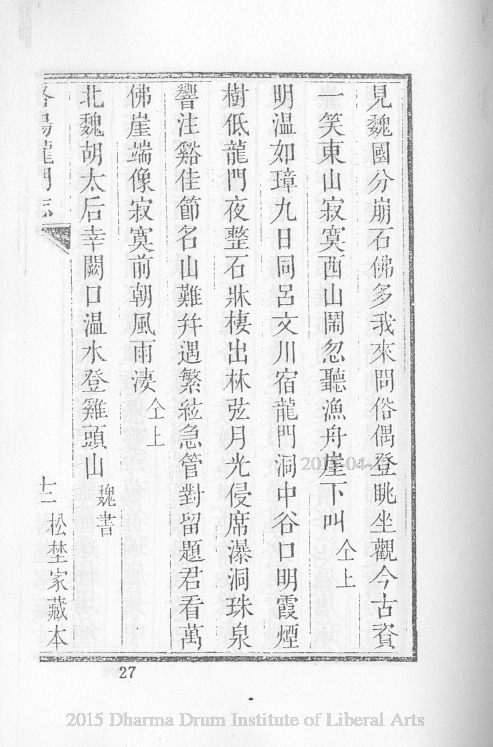 見魏國分崩石佛多我來問俗偶登眺坐觀今古資
一笑東山寂寞西山鬧忽聽漁舟崖下叫 仝上
明温如璋九日同呂文川宿龍門洞中谷口明霞煙
樹低龍門夜整石牀棲出林弦月光侵席瀑洞珠泉
響注谿佳節名山難并遇繁絃急管對留題君看萬
佛崖端像寂寞前朝風雨淒 仝上
北魏胡太后幸闕口温水登雞頭山 魏書
洛陽龍門志
十二 松埜家藏本
27
2015 Dharma Drum Institute of Liberal Arts